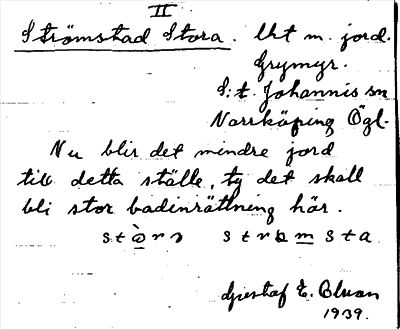 II
Strömstad Stora. Ukt m. jord.
Grymyr.
S:t. Johannis sn
Norrköping Ögl.
Nu blir det mindre jord
till detta ställe, ty det skall
bli stor badinrättning här.
Gustaf E. Bluan
1939.